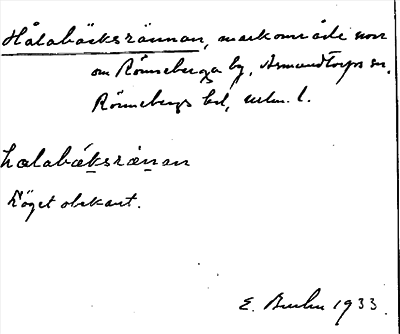 Hålabäcksrännan, markområde norr
om Rönneberga by, Asmundtorps sn,
Rönnebergs hd, Mlm. l.
hålabäksränan
Läget obekant.
E. 1933.